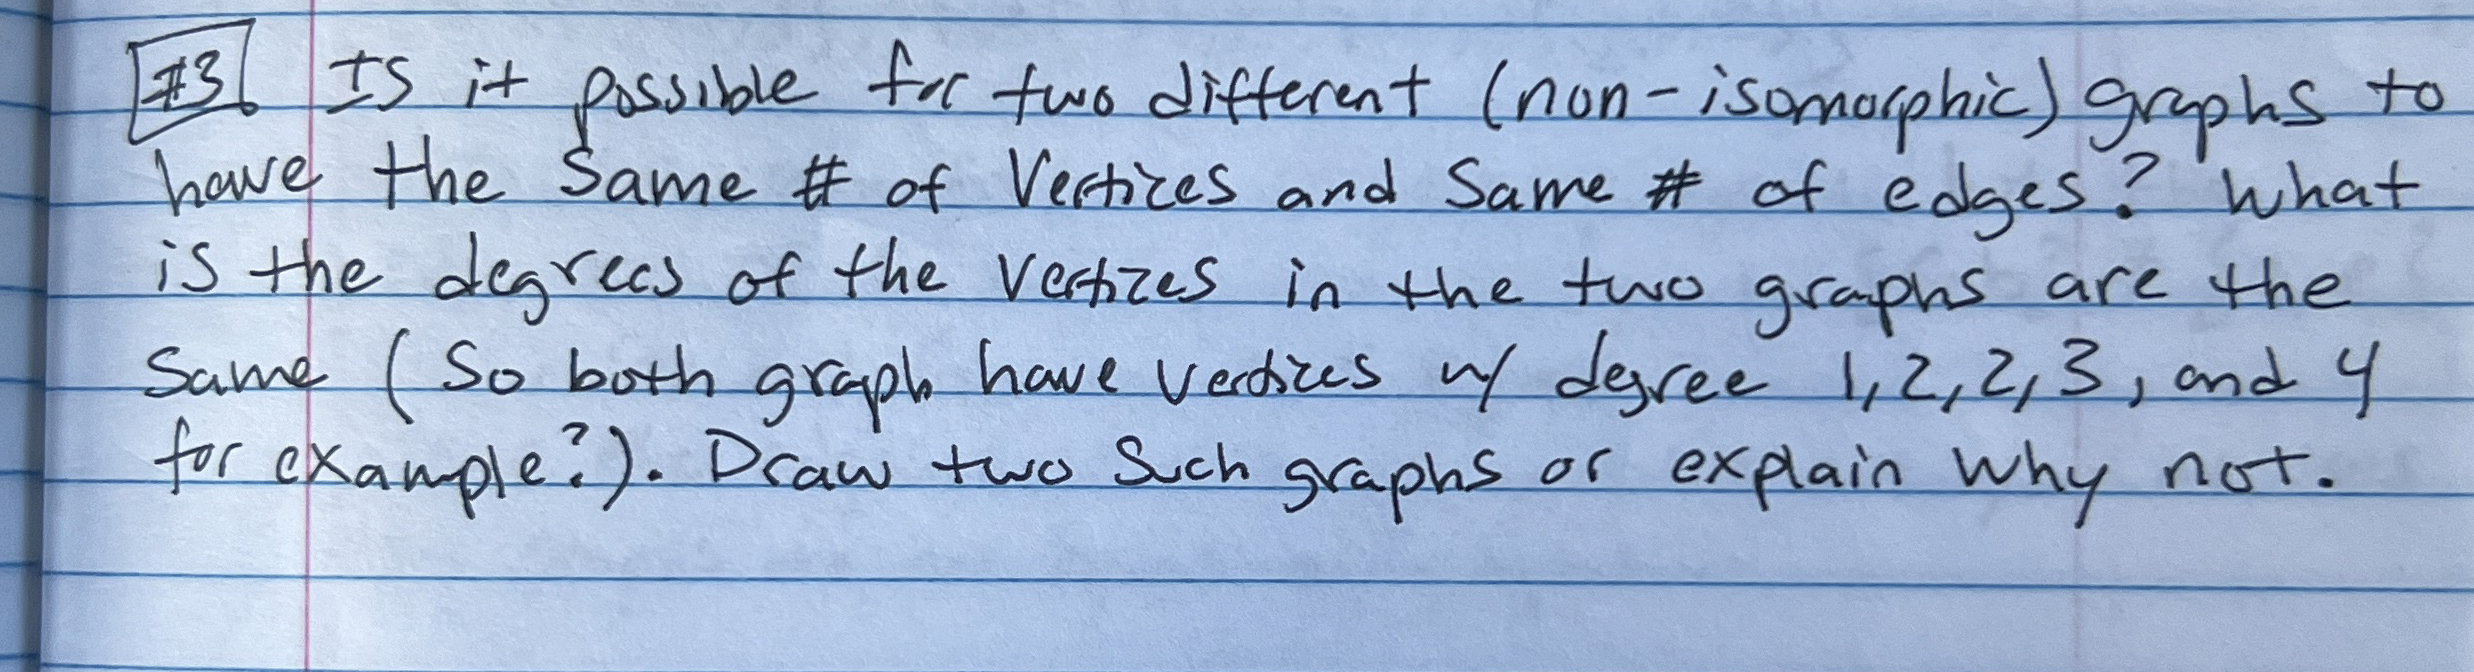 #3. Is it possible for two different (non-isomorphic) graphs to
have the same # of vertices and same # of edges? What
is the degrees of the vertices in the two graphs are the
same (So both graph have vertices w/ degree 1, 2, 2, 3, and 4
for example?). Draw two such graphs or explain why not.